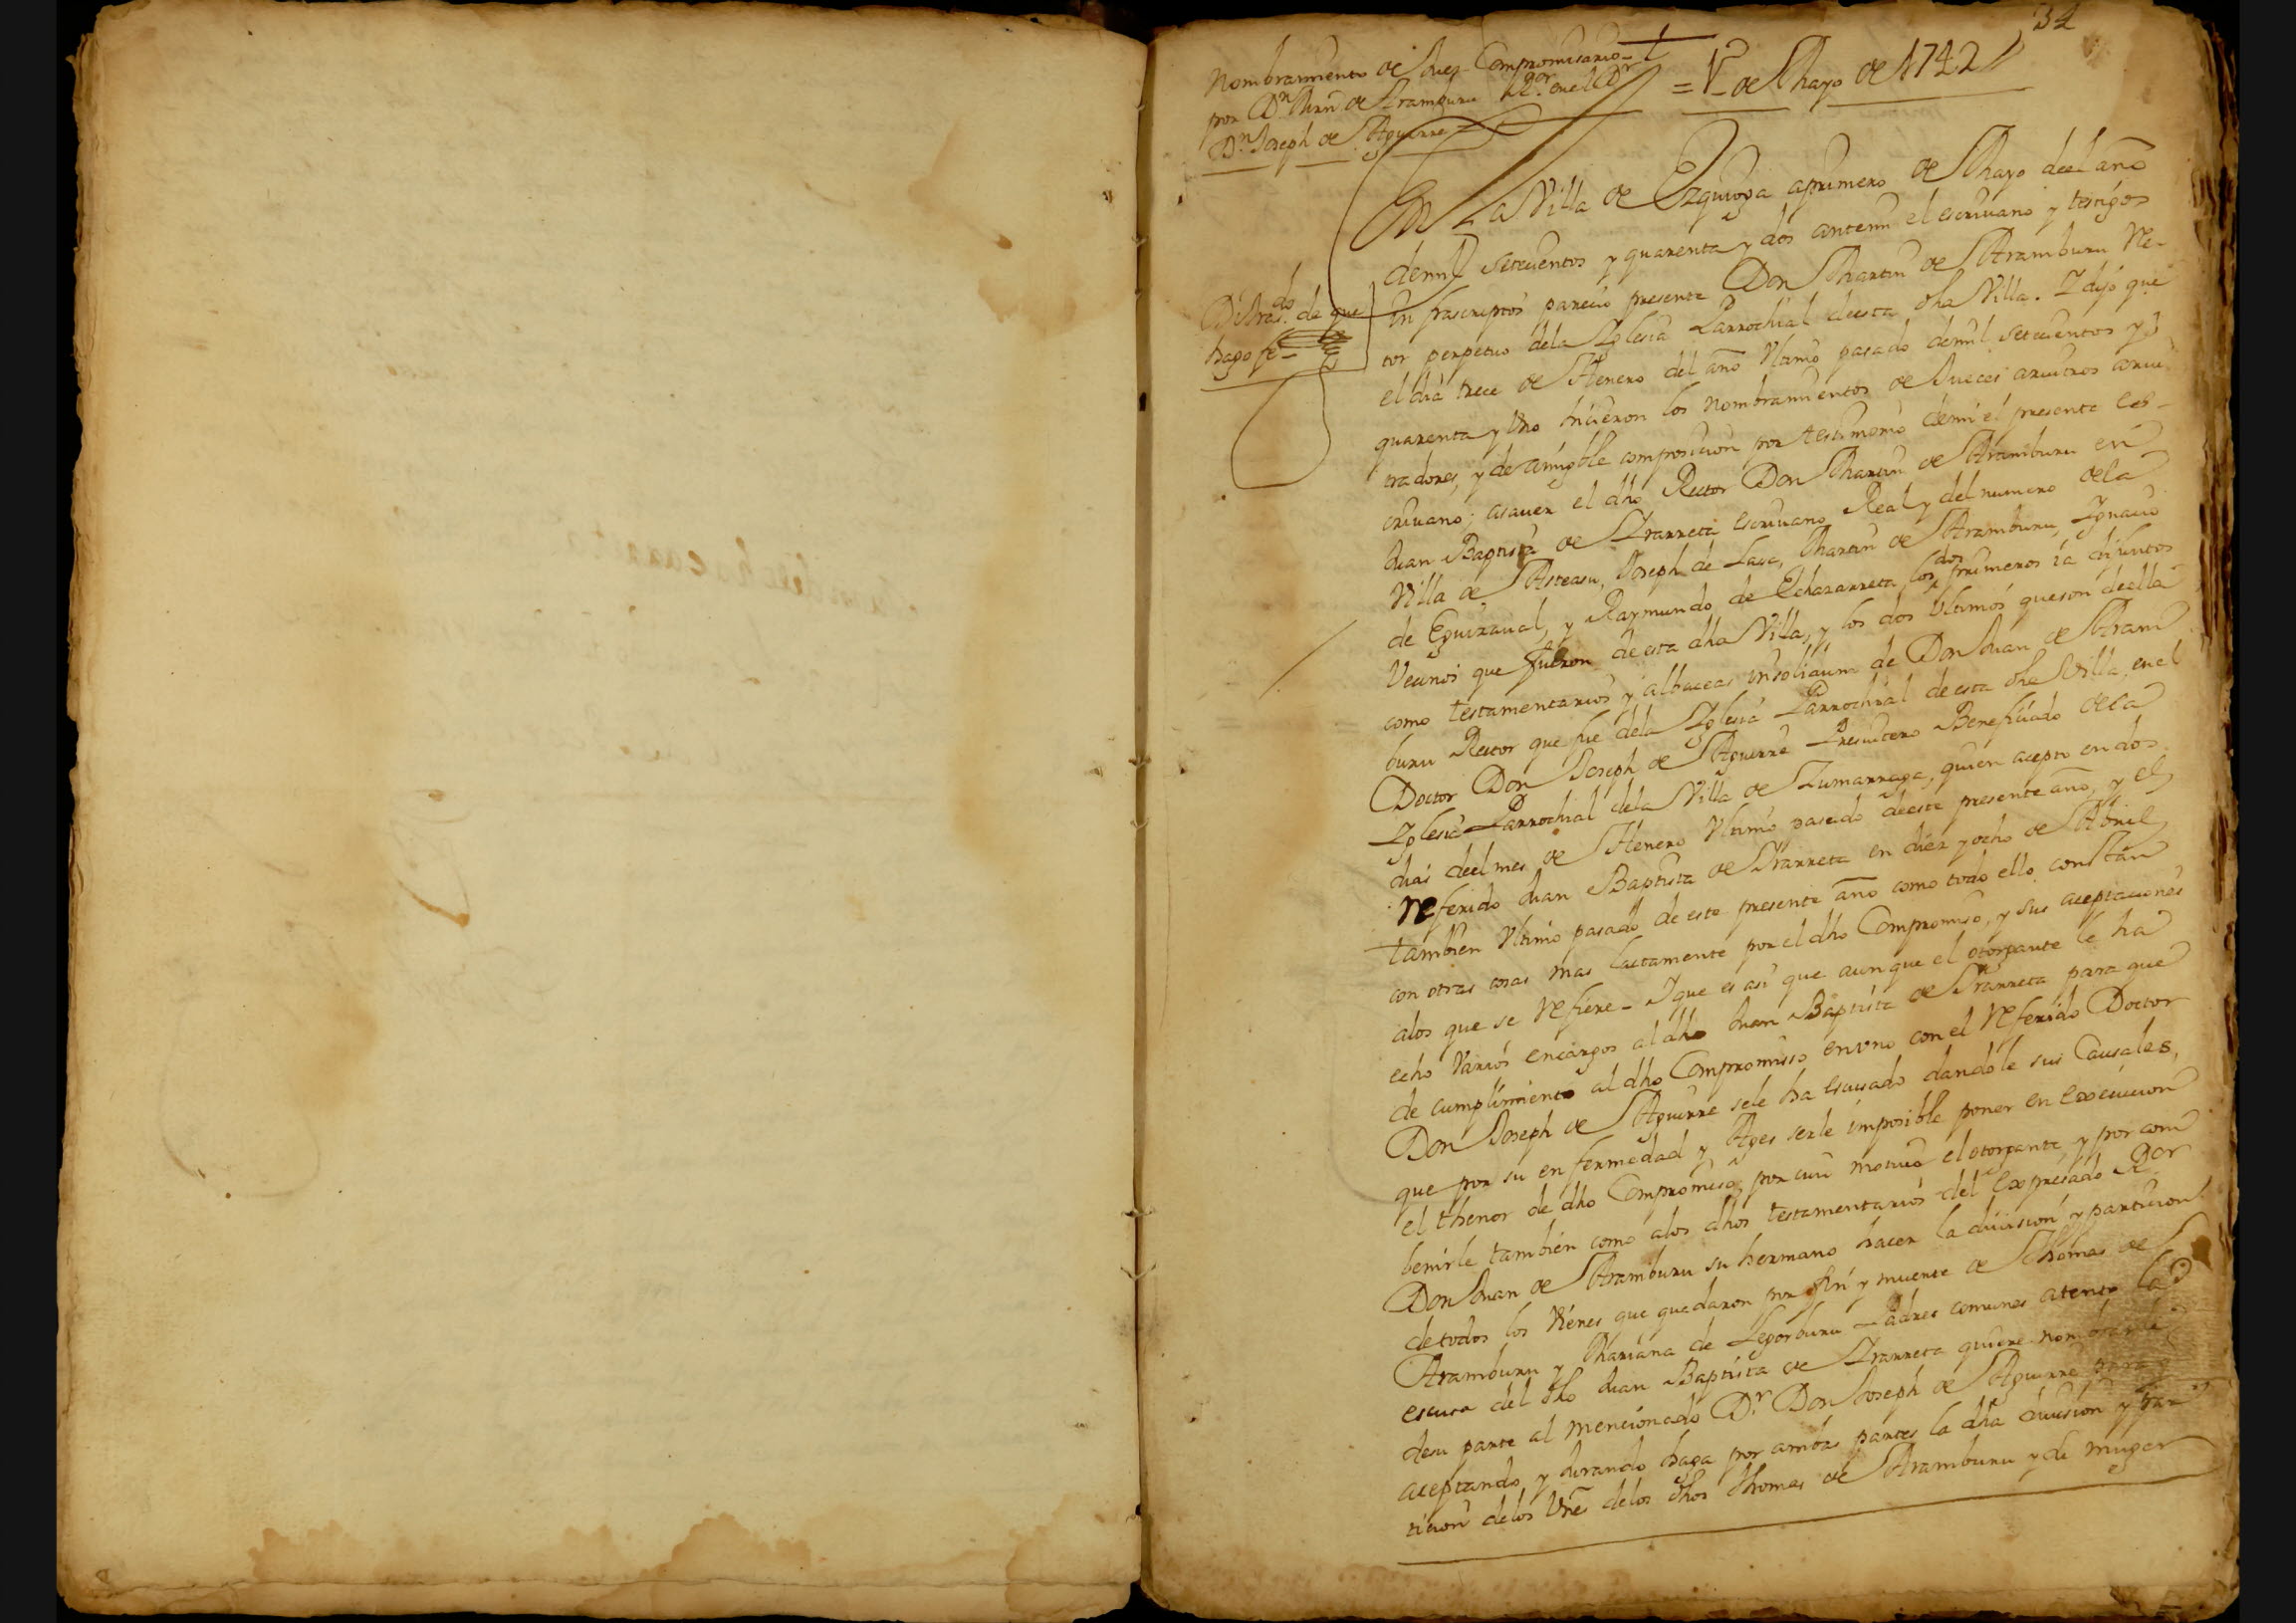 34
Nombramiento de Juez Compromisario
por Dn. Mrn de Aramburu Rr. en el Dr.
Dn. Joseph de Aguirre
= 1º de Mayo de 1742
En La Villa de Ezquioga a primero de Mayo deel año
demil setecientos y quarenta y dos antemi el escrivano y testigos
Infrascriptos parecio presente Don Martin de Aramburu Re-
tor perpetuo dela Iglesia Parrochial deesta dha Villa. I dijo que
el dia trece de Henero del año Ultimo pasado demil setecientos y
quarenta y Uno hicieron los nombramientos de Jueces arvitros arvi-
tradores, y de amigble composicion por testimonio demi el presente es-
crivano; asaver el dho Rector Don Martin de Aramburu en
Juan Baptista de Irarreta escrivano Real y del numero dela
Villa de Asteasu, Joseph de Lasa, Martin de Aramburu, Ignacio
de Eguizaval, y Raymundo de Echazarreta los dos primeros ia difuntos
Vecinos que fueron deesta dha Villa, y los dos Ultimos queson deella
como testamentarios y albaceas insolidum de Don Juan de Aram
buru Rector que fue dela Iglesia Parrochial deesta dha Villa, en el
Doctor Don Joseph de Aguirre Presvitero Beneficiado dela
Iglesia Parrochial dela Villa de Zumarraga, quien acepto en dos
dias deel mes de Henero Ultimo pasado deeste presente año, y el
referido Juan Baptista de Irarreta en diez y ocho de Abril
tambien Ultimo pasado de este presente año como todo ello constan
con otras cosas mas lactamente por el dho Compromiso, y sus aceptaciones
alos que se refiere - I que es asi que aunque el otorgante le ha
echo Varios encargos al dho Juan Baptista de Irarreta para que
de cumplimiento al dho Compromisso envno con el referido Doctor
Don Joseph de Aguirre sele ha escusado dandole sus Causales,
que por su enfermedad y Ages serle imposible poner en Execucion
el thenor de dho Compromiso, por cuio motivo el otorgante, y por com
benirle tambien como alos dhos testamentarios del Expresado Ror
Don Juan de Aramburu su hermano hacer la division y particion
detodos los Vienes que quedaron por fin y muerte de Thomas de
Aramburu y Mariana de Legorburu Padres comunes atento la
escusa del dho Juan Baptista de Irarreta quiere nombrarle
desu parte al mencionado Dr. Don Joseph de Aguirre para q
aceptando, y Jurando haga por ambas partes la dha division y par
ticion delos Vnes delos dhos Thomas de Aramburu y di muger
Di tras.do de que
hago fe -